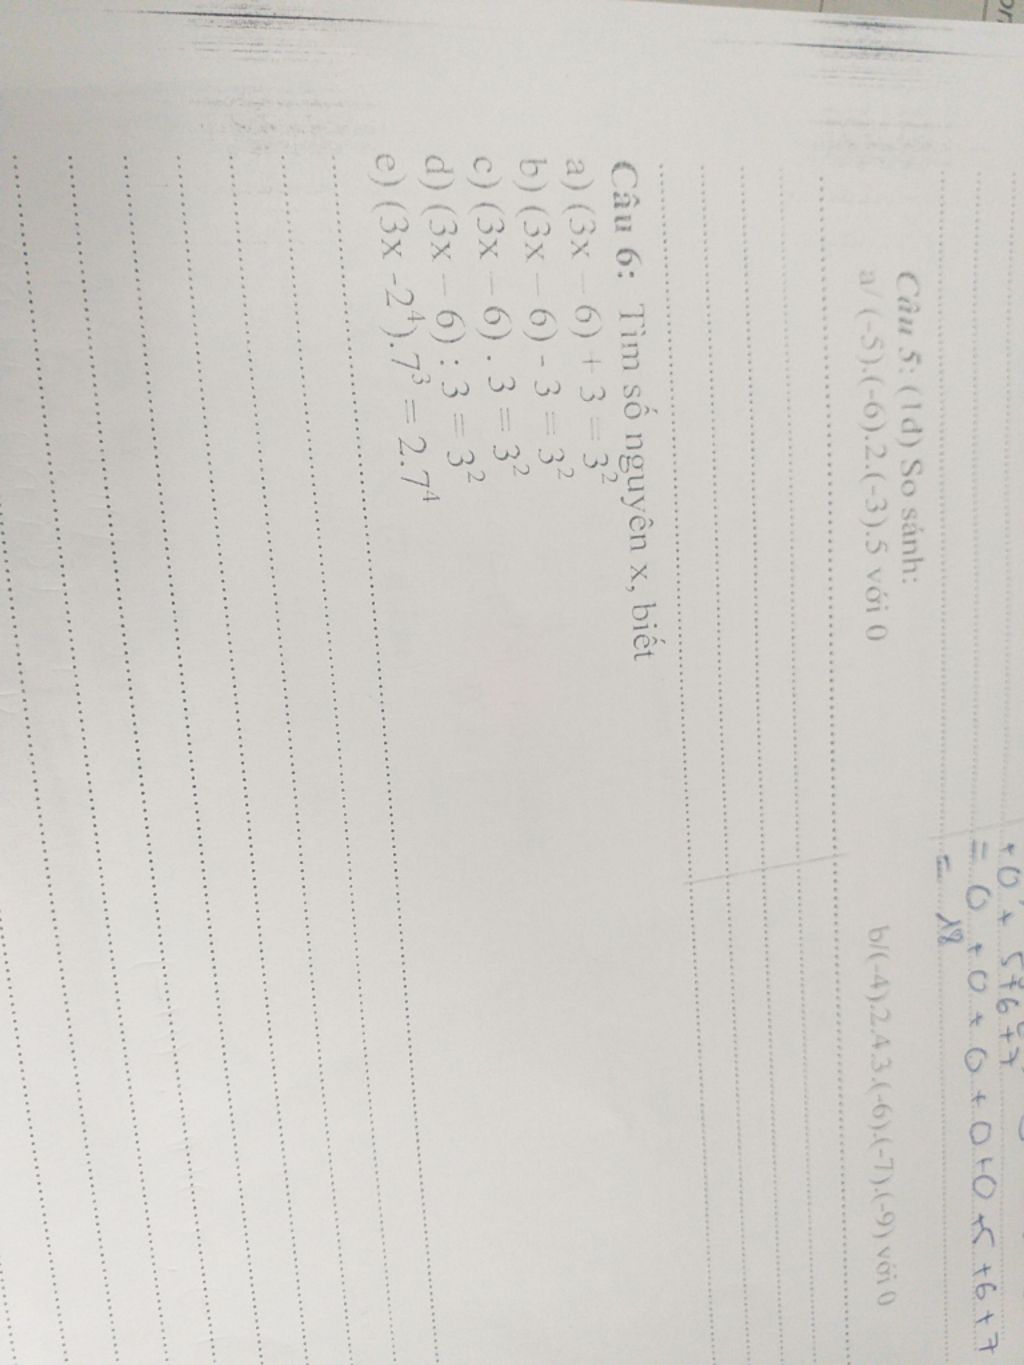 +0 + 5+6+7
= 0 + 0 + 0 + 0+0+5+6+7
= 18
Câu 5: (1d) So sánh:
a/ (-5).(-6).2.(-3).5 với 0 b/(-4).2.4.3.(-6).(-7).(-9) với 0
Câu 6: Tìm số nguyên x, biết
a) (3x – 6) + 3 = 3²
b) (3x – 6) - 3 = 3²
c) (3x – 6) . 3 = 3²
d) (3x – 6) : 3 = 3²
e) (3x -2⁴).7³ = 2.7⁴